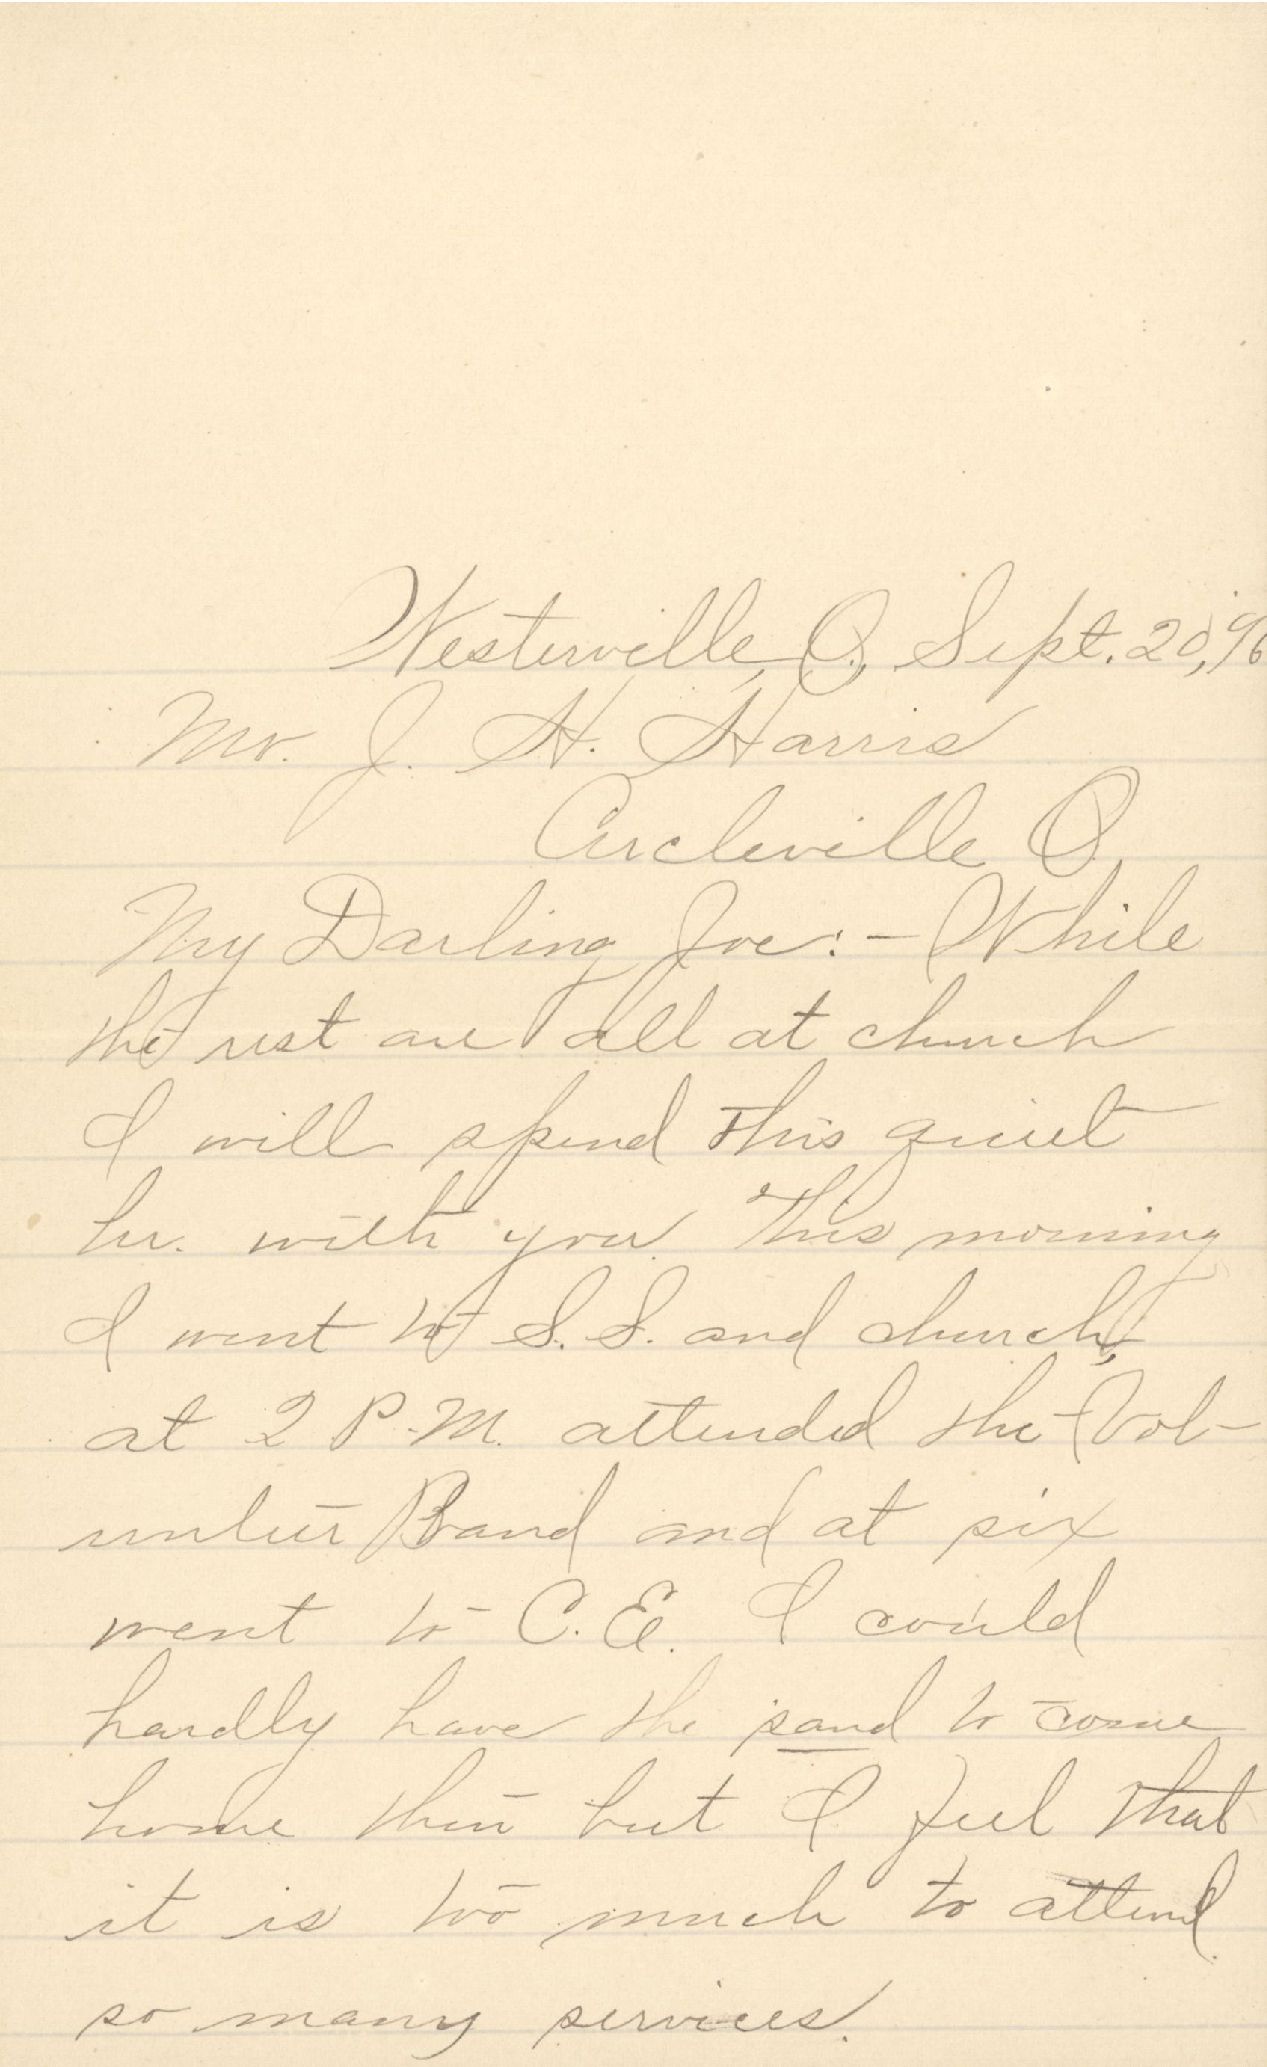 Westerville, O., Sept. 20, '96
Mr. J. H. Harris
Circleville O.
My Darling Joe:- While
the rest are all at church
I will spend this quiet
hr. with you. This morning
I went to S.S. and church,
at 2 P.M. attended the Vol-
unteer Band and at six
went to C.E. I could
hardly have the sand to come
home then but I feel that
it is too much to attend
so many services.